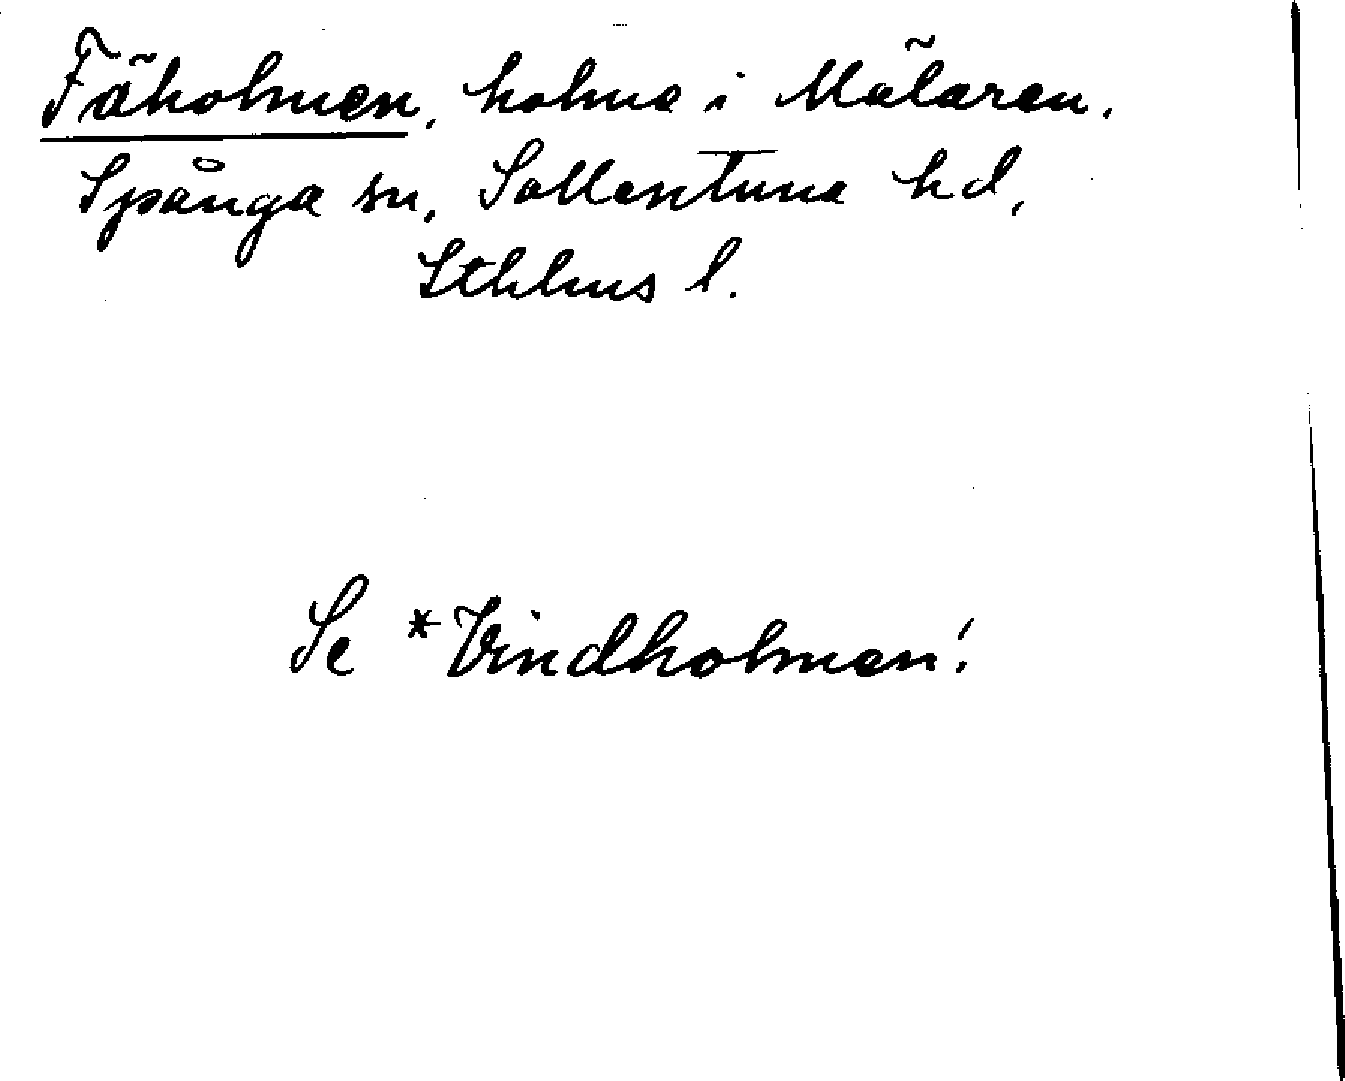 Fäholmen, holme i Mälaren,
Spånga sn, Sollentuna hd,
Sthlms l.
Se *Vindholmen!